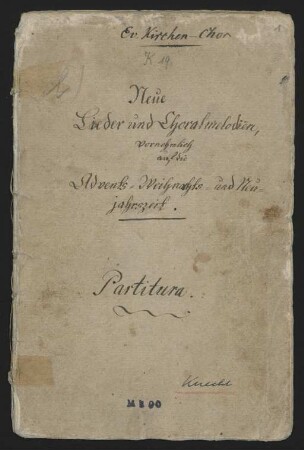 Ev. Kirchen-Chor
K 19.
Neue
Lieder und Choralmelodien,
vornehmlich
auf die
Advents- Weihnachts- und Neu-
jahrszeit.
Partitura.
Knecht
M 890